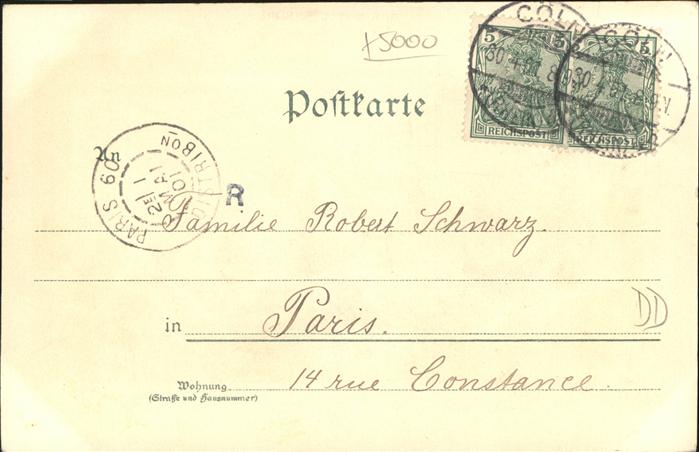 +5000
5 5
REICHSPOST REICHSPOST
CÖLN CÖLN
30.4.01
Postkarte
An
PARIS 60 DISTRIBON
R
Familie Robert Schwarz.
in Paris.
DD
Wohnung 14 rue Constance.
(Straße und Hausnummer)